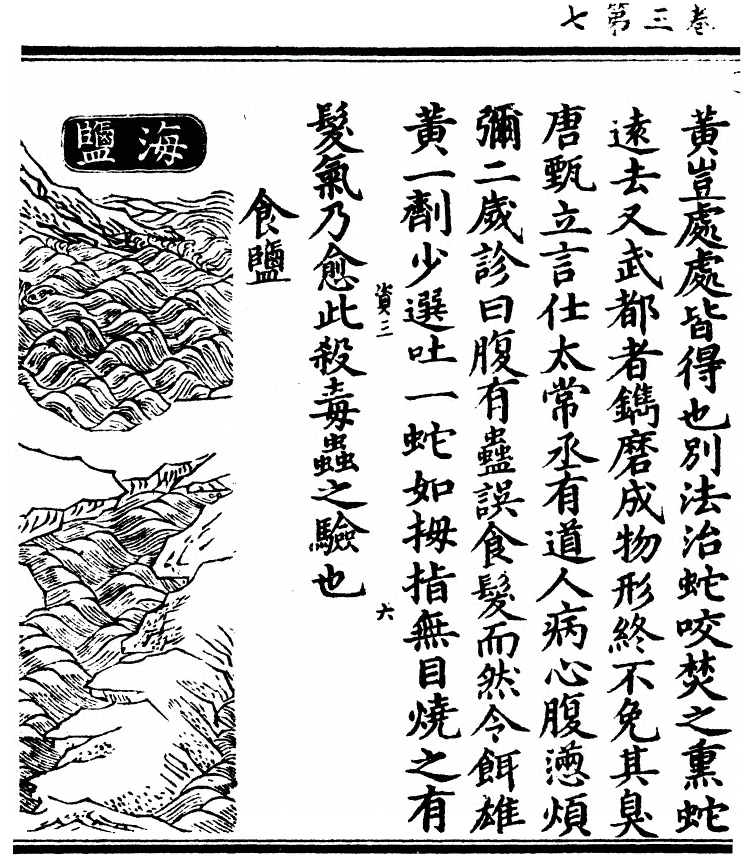 卷三第七
黃豈處處皆得也別法治蛇咬焚之熏蛇
遠去又武都者鐫磨成物形終不免其臭
唐甄立言仕太常丞有道人病心腹懣煩
彌二歲診曰腹有蠱誤食髮而然令餌雄
黃一劑少選吐一蛇如拇指無目燒之有
資三
六
髮氣乃愈此殺毒蟲之驗也
食鹽
海鹽